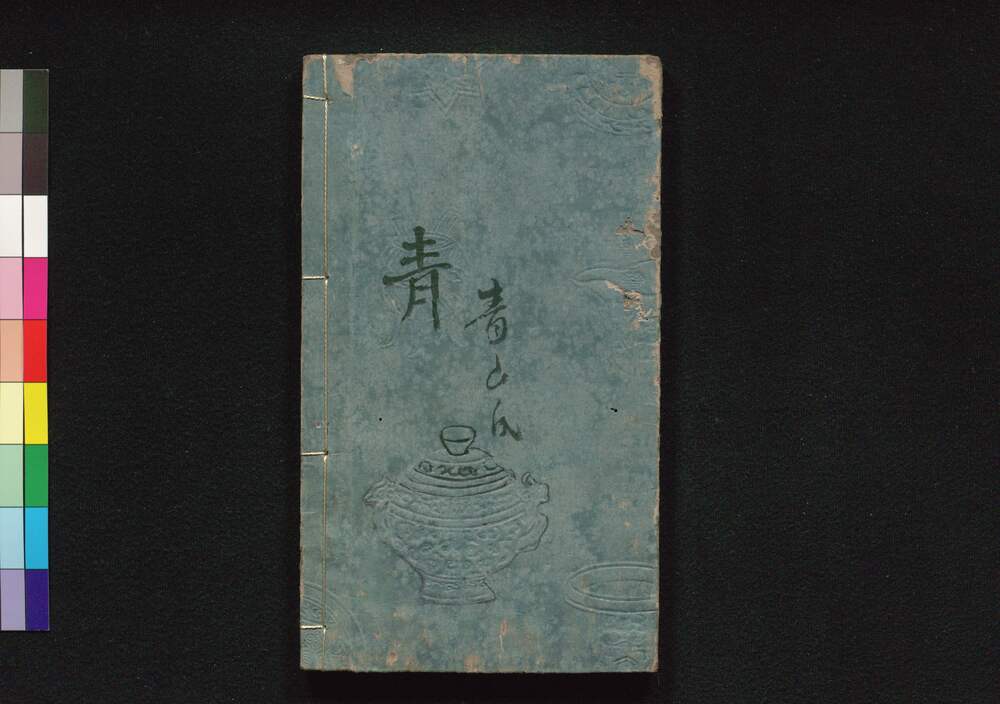 青山氏
青